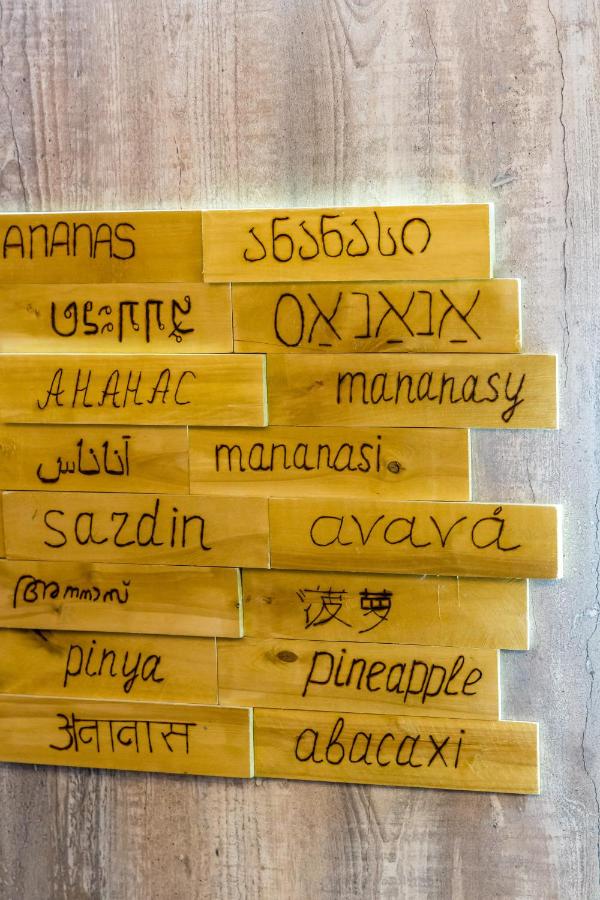 ANANAS ანანასი
אַנאַנאַס
АНАНАС mananasy
آناناس mananasi
sazdin ανανά
菠 萝
pinya pineapple
अनानास abacaxi